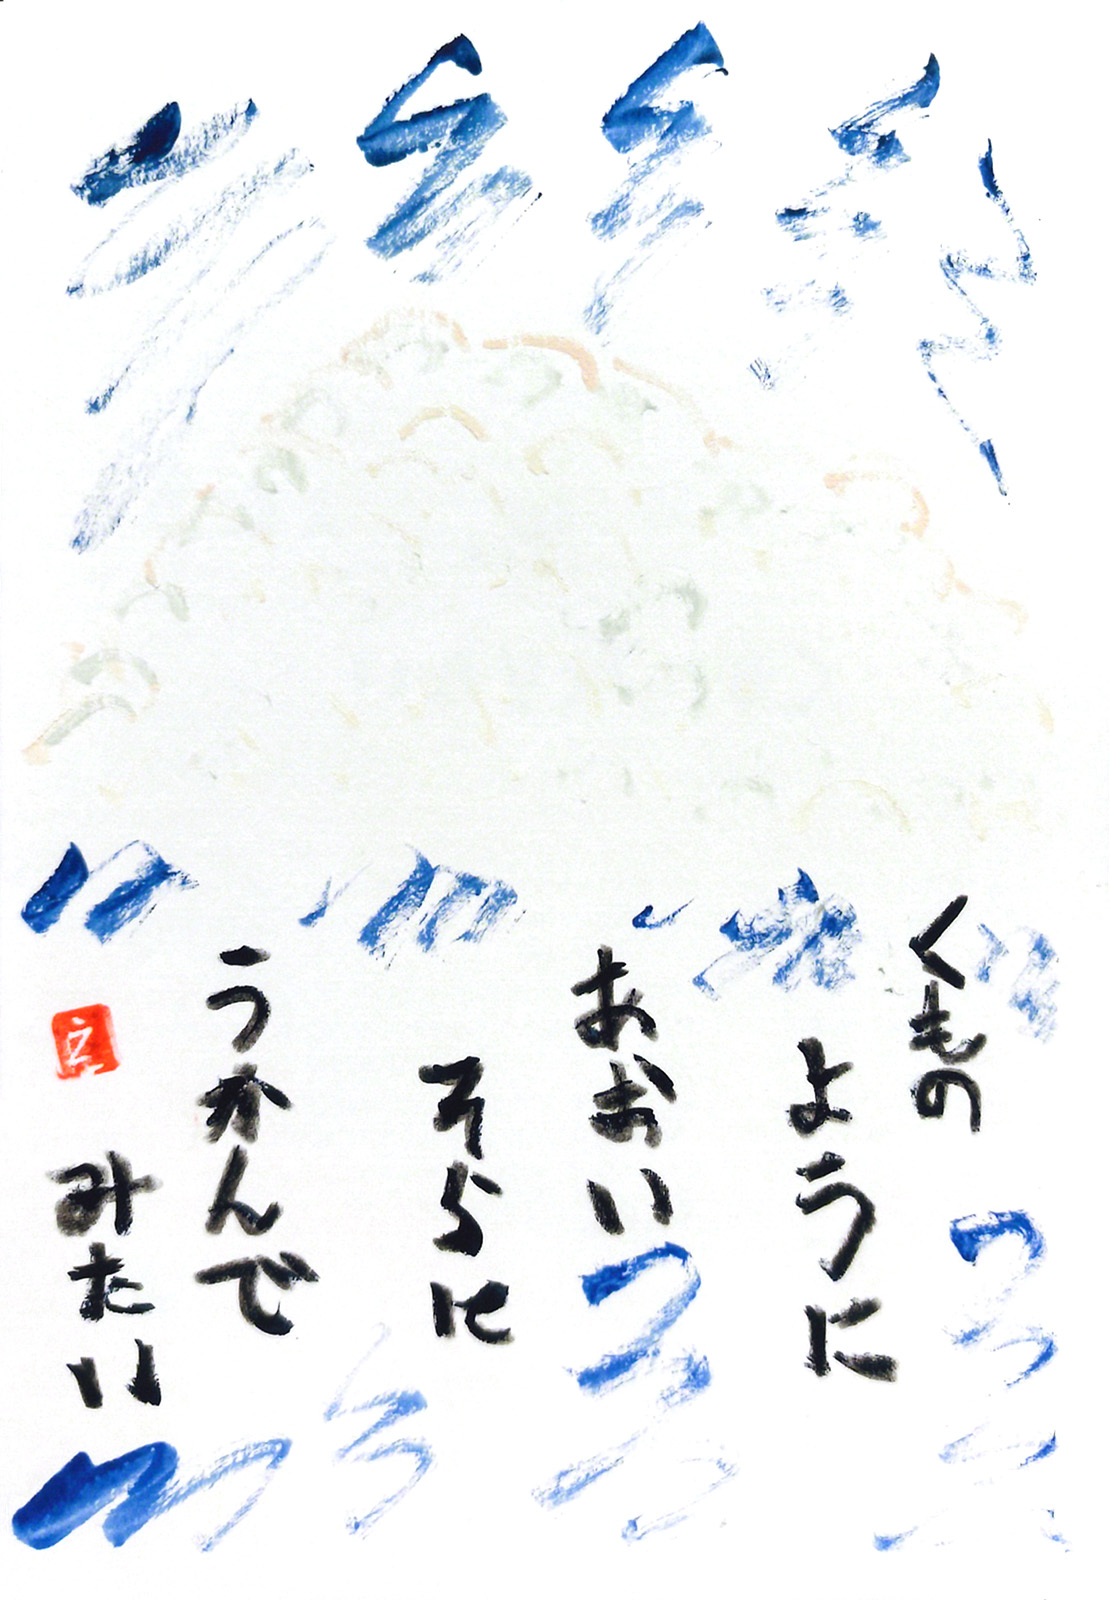 くもの
ように
あおい
そらに
うかんで
みたい